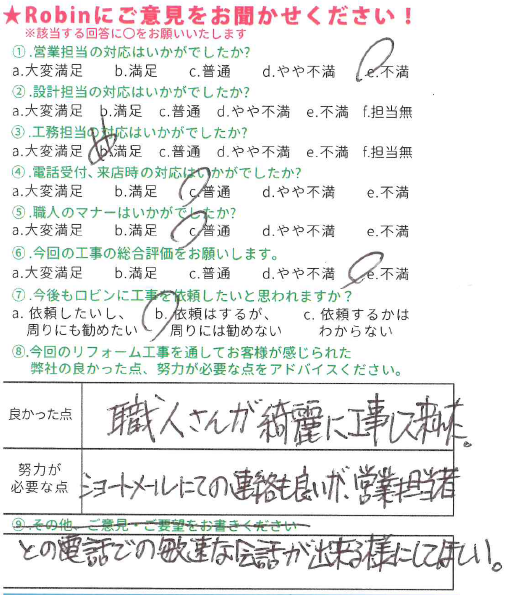 ★Robinにご意見をお聞かせください！
※該当する回答に〇をお願いいたします
①.営業担当の対応はいかがでしたか?
a.大変満足 b.満足 c.普通 d.やや不満 e.不満
②.設計担当の対応はいかがでしたか?
a.大変満足 b.満足 c.普通 d.やや不満 e.不満 f.担当無
③.工務担当の対応はいかがでしたか?
a.大変満足 b.満足 c.普通 d.やや不満 e.不満 f.担当無
④.電話受付、来店時の対応はいかがでしたか?
a.大変満足 b.満足 c.普通 d.やや不満 e.不満
⑤.職人のマナーはいかがでしたか?
a.大変満足 b.満足 c.普通 d.やや不満 e.不満
⑥.今回の工事の総合評価をお願いします。
a.大変満足 b.満足 c.普通 d.やや不満 e.不満
⑦.今後もロビンに工事を依頼したいと思われますか？
a. 依頼したいし、 b. 依頼はするが、 c. 依頼するかは
周りにも勧めたい 周りには勧めない わからない
⑧.今回のリフォーム工事を通してお客様が感じられた
弊社の良かった点、努力が必要な点をアドバイスください。
良かった点 職人さんが綺麗に工事して来れた。
努力が
必要な点 ショートメールにての連絡も良いが、営業担当者
⑨.その他、ご意見・ご要望をお書きください
との電話での敏速な会話が出来る様にしてほしい。